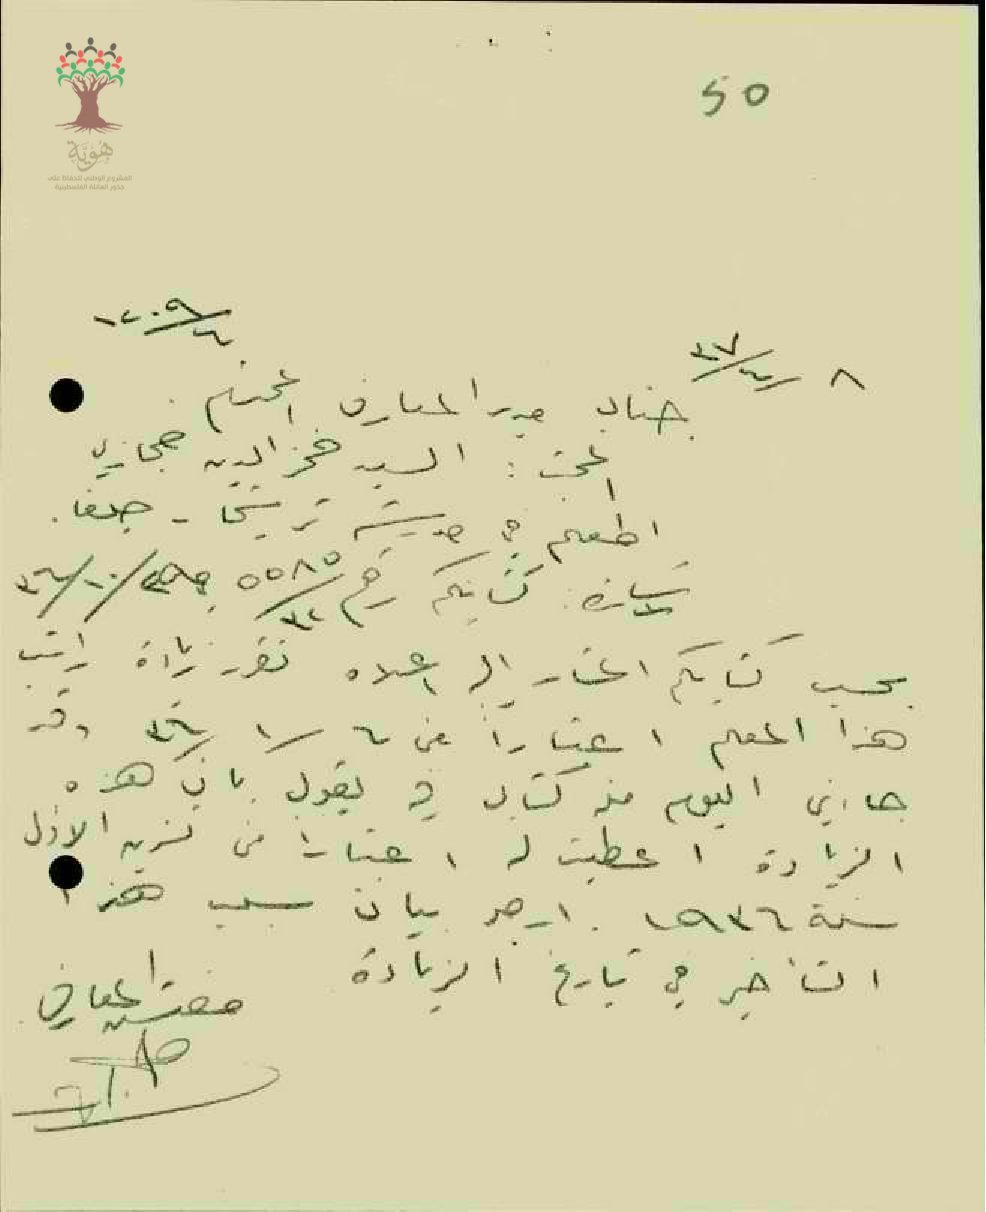 50
هوية
المشروع الوطني للحفاظ على
جذور العائلة الفلسطينية
٨
جناب مدير المعارف المحترم
المبحث: السيد فخر الدين حجازي
المعلم في مدرسة ترشيحا - صفد.
كتابكم رقم
بحسب كتابكم المشار اليه اعلاه تقرر زيادة راتب
هذا المعلم اعتباراً من ٣٦ وقد
جاءني اليوم منه كتاب يقول بان هذه
الزيادة اعطيت له اعتبارا من تشرين الاول
سنة ١٩٣٦. ارجو بيان سبب هذا
التأخير في تاريخ الزيادة
مفتش المعارف